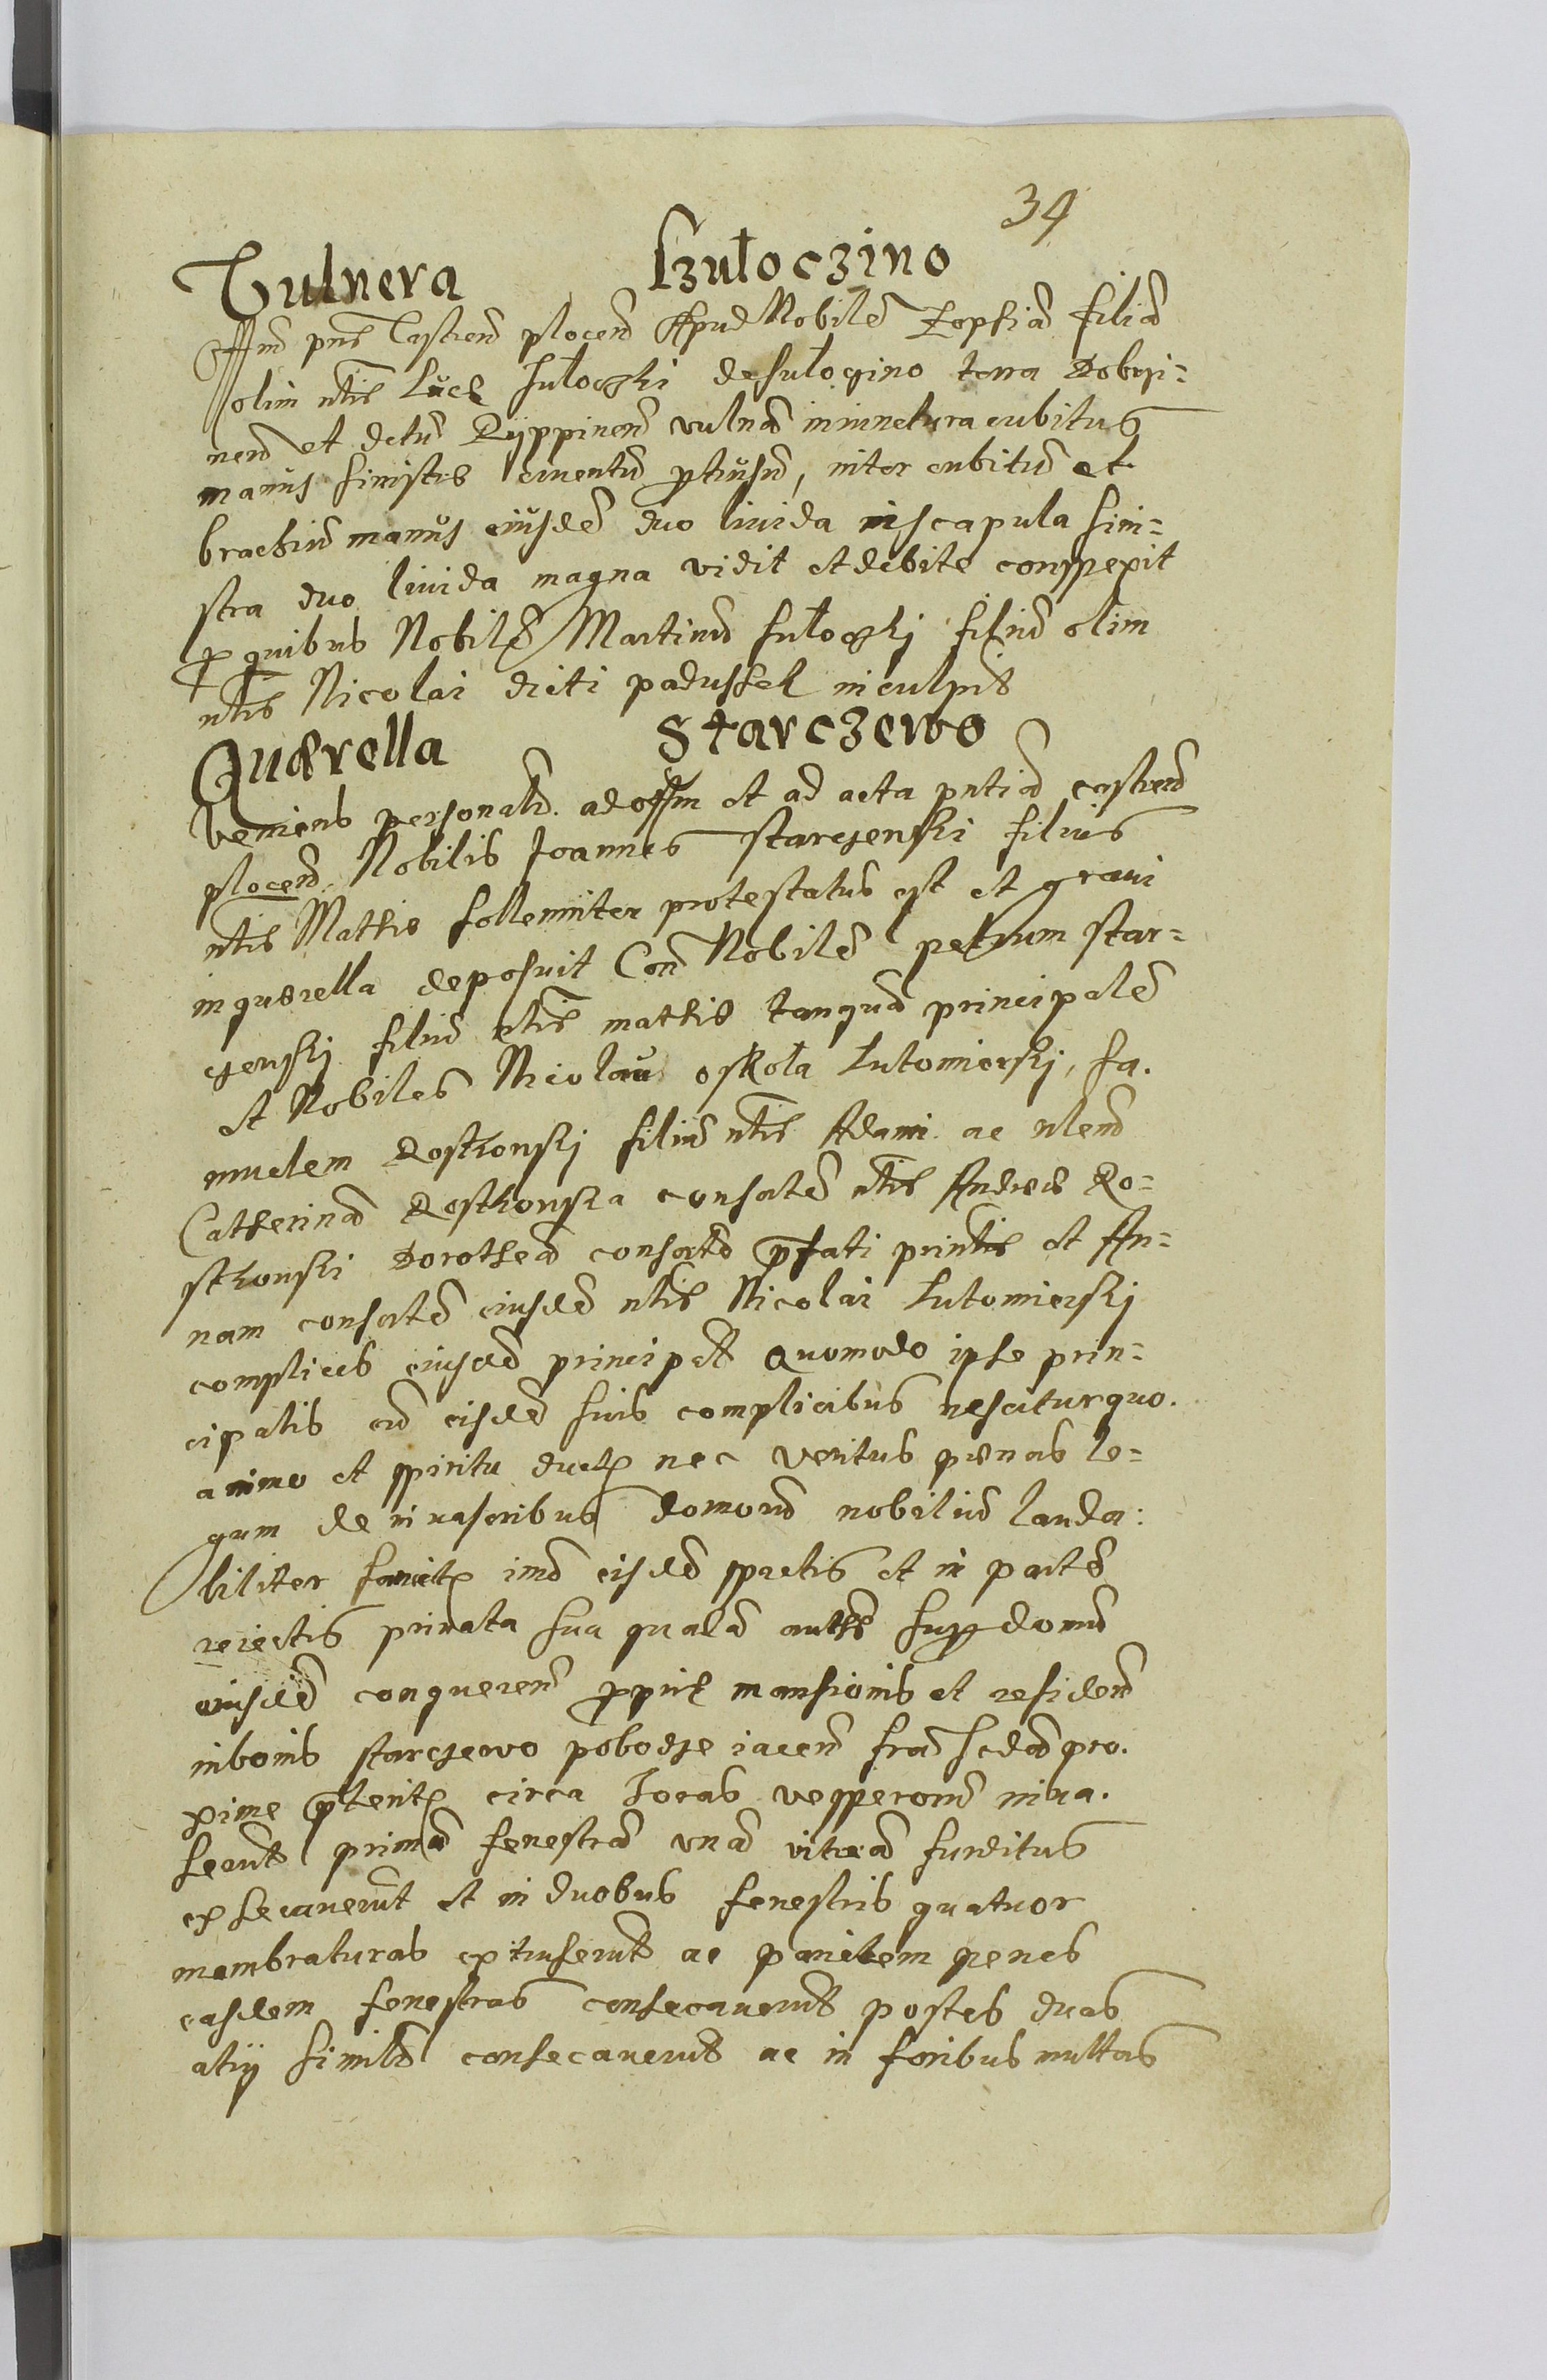 34
Vulnera Szułoczino
Aud pns Castren plocen Apud Nobilē Zophiā filiā
olim nłis Lucę Sułoczki de Sułoczino terra Dobrzi=
nen et dctu Ryppinen vulnā in iunctura cubitus
manus sinistrę cruentū ptusū, inter cubitū et
brachiū manus eiusdē duo liuida in scapula sini=
stra duo liuida magna vidit et debite conspexit
p quibus Nobilē Martinū Sułoczkj filiū olim
nłis Nicolai dicti paduszek inculpat
Quærella Starczewo
Veniens personalr. ad offm et ad acta pntiā castren
plocen. Nobilis Joannes Starczewski filius
nłis Mathię sollemniter protestatus est et graui
in quærella deposuit Con Nobilē petrum Star=
czewskj filiū nłis mathię tanquā principalē
et Nobiles Nicolau oskoła Lutomierskj, Sa.
muelem Rosthowskj filiū nłis Adami ac nlem
Catherinā Rosthowska consortē nłis Andreæ Ro=
sthowski Dorotheā consortē pfati prinłis et An=
nam consortē eiusdē nłis Nicolai Lutomierskj
complices eiusdē principał Quomodo ipse prin=
cipalis cū eisdē suis complicibus nescitur quo.
animo et spiritu duct9 nec veritus pœnas le=
gum de inuasoribus domorū nobiliū lauda:
biliter sancit9 imo eisdē spretis et in partē
reiectis priuata sua quadā auth sup domū
eiusdē conqueren pprię mansionis et residen
in bonis Starczewo pobodze iacen fra Sedā pro.
xime pterit9 circa horas vesperorū inua.
serunt primā fenestrā vnā vitreā funditus
exsecauerunt et in duobus fenestris quatuor
membraturas extuserunt ac parietem penes
easdem fenestras consecauerunt postes duas
atry similr consecauerunt ac in foribus multas